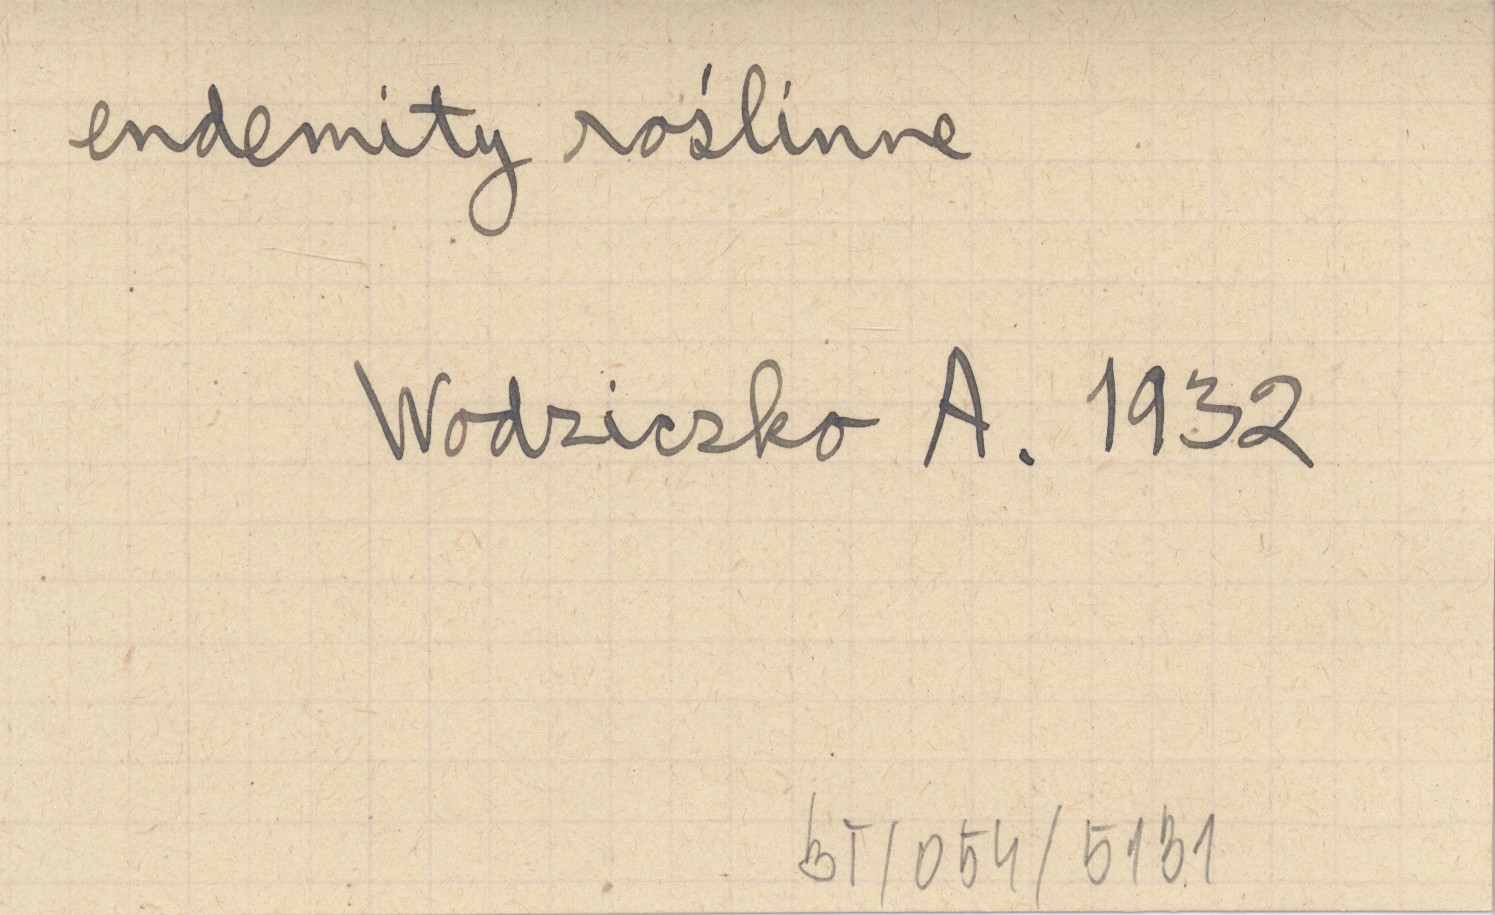 endemity roślinne
Wodziczko A. 1932
BT/054/5131